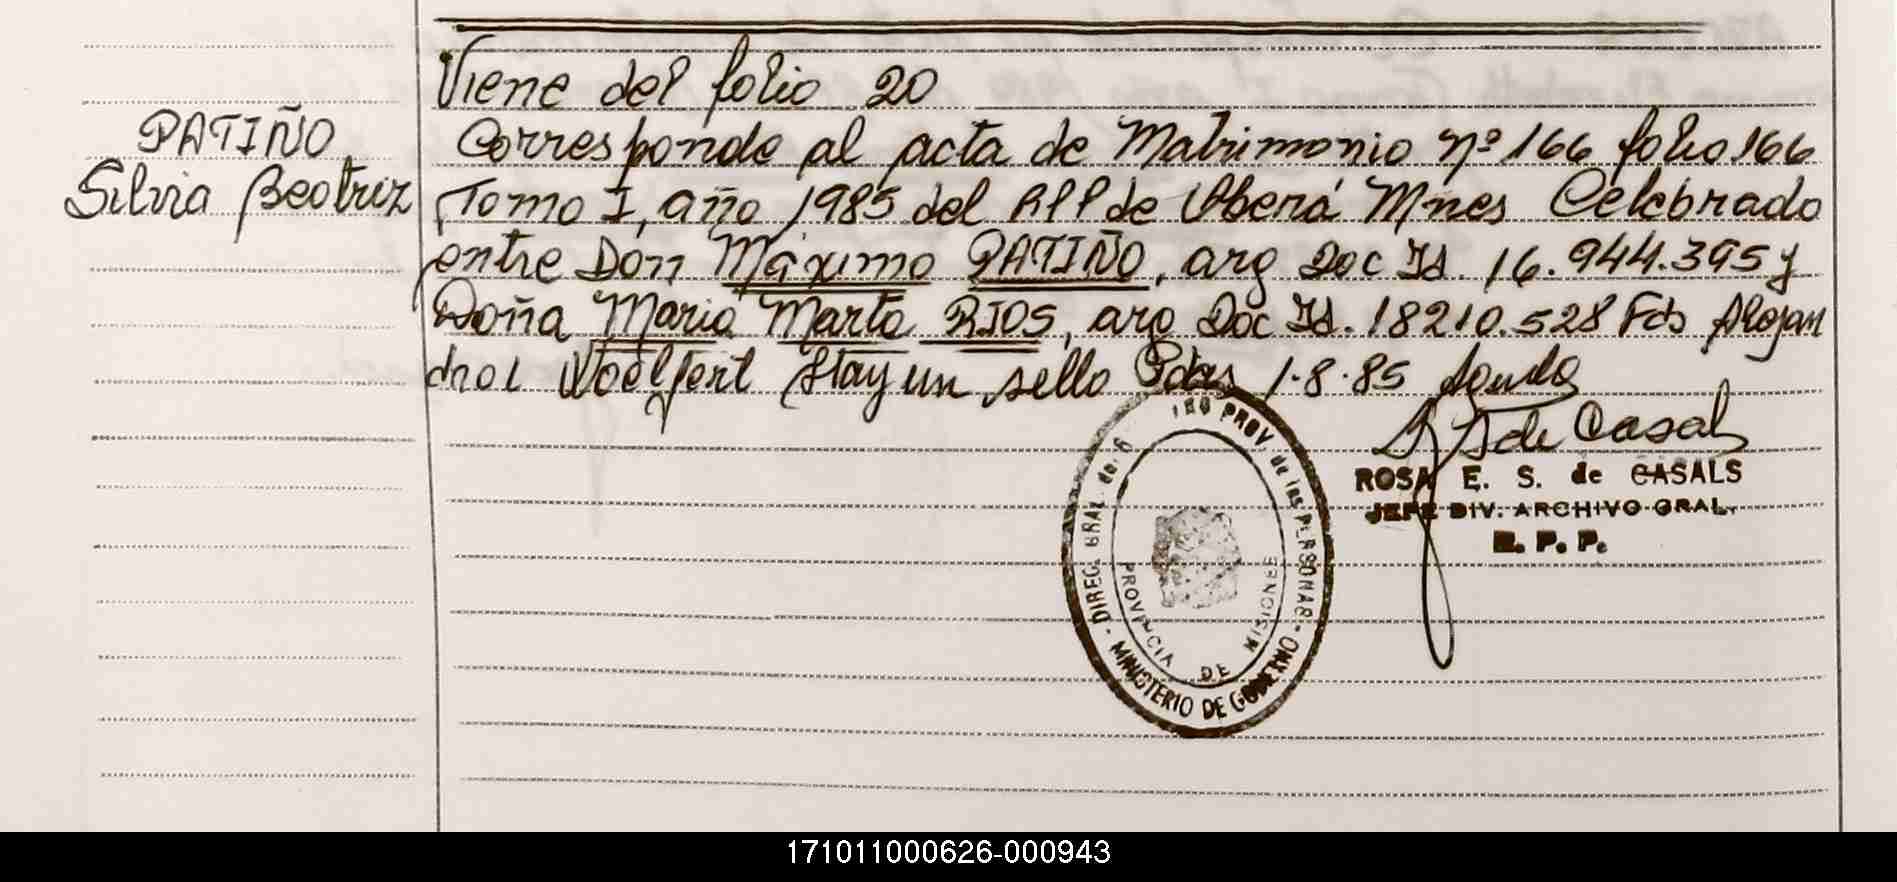 Viene del folio 20
PATIÑO
Silvia Beatriz
Corresponde al acta de Matrimonio Nº 166 folio 166
Tomo I, año 1985 del RPP de Oberá Mnes Celebrado
entre Don Máximo PATIÑO, arg Doc Id. 16.944.395 y
Doña Maria Marta RIOS, arg Doc Id. 18210.528 Fdo Alejan
dro Hay un sello Pdas 1.8.85
de Casals
ROSA E. S. de CASALS
JEFE DIV. ARCHIVO GRAL.
R. P. P.
DIREC. GRAL. del REG PROV. de las PERSONAS - MINISTERIO DE GOBIERNO -
PROVINCIA DE MISIONES
171011000626-000943